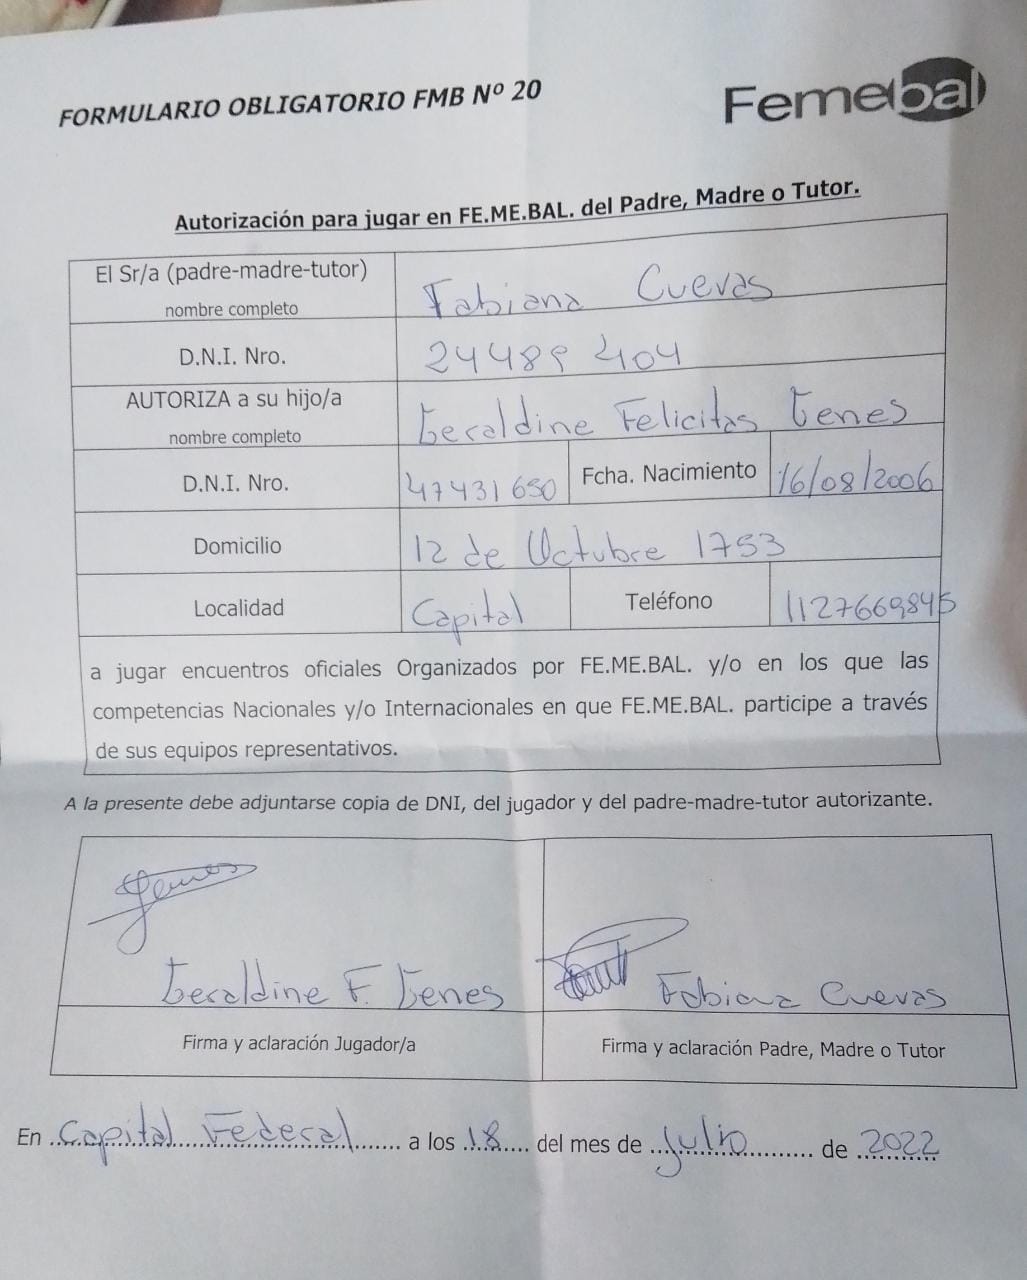 FORMULARIO OBLIGATORIO FMB Nº 20
Femebal
Autorización para jugar en FE.ME.BAL. del Padre, Madre o Tutor.
El Sr/a (padre-madre-tutor)
nombre completo
Fabiana Cuevas
D.N.I. Nro.
24489404
AUTORIZA a su hijo/a
nombre completo
Geraldine Felicitas Genes
D.N.I. Nro.
47431650
Fcha. Nacimiento
16/08/2006
Domicilio
12 de Octubre 1753
Localidad
Capital
Teléfono
1127669845
a jugar encuentros oficiales Organizados por FE.ME.BAL. y/o en los que las
competencias Nacionales y/o Internacionales en que FE.ME.BAL. participe a través
de sus equipos representativos.
A la presente debe adjuntarse copia de DNI, del jugador y del padre-madre-tutor autorizante.
Geraldine F. Genes
Fabiana Cuevas
Firma y aclaración Jugador/a
Firma y aclaración Padre, Madre o Tutor
En Capital Federal a los 18 del mes de Julio de 2022